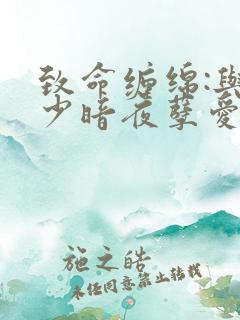 致命缠绵:与
少暗夜孽爱
施之皓
未经同意禁止转载